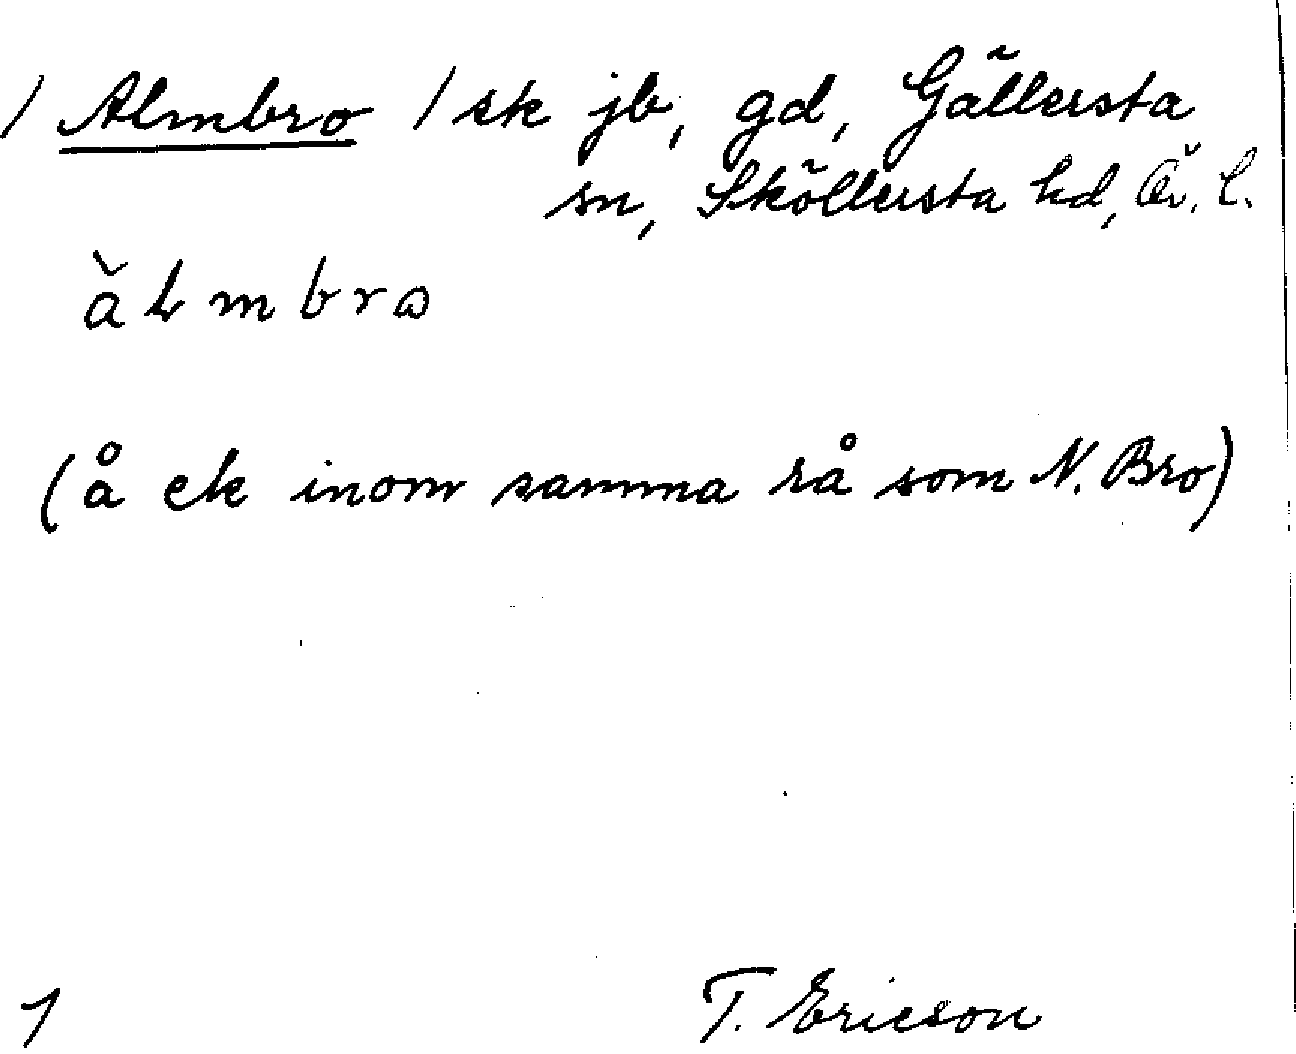 / Almbro / ek jb, gd, Gällersta
sn, Sköllersta hd, Ör. l.
(å ek inom samma rå som N. Bro)
1
T. Ericson